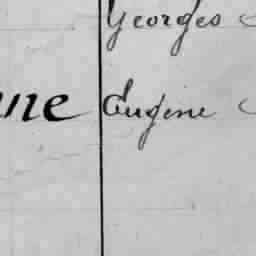 Georges
Eugène